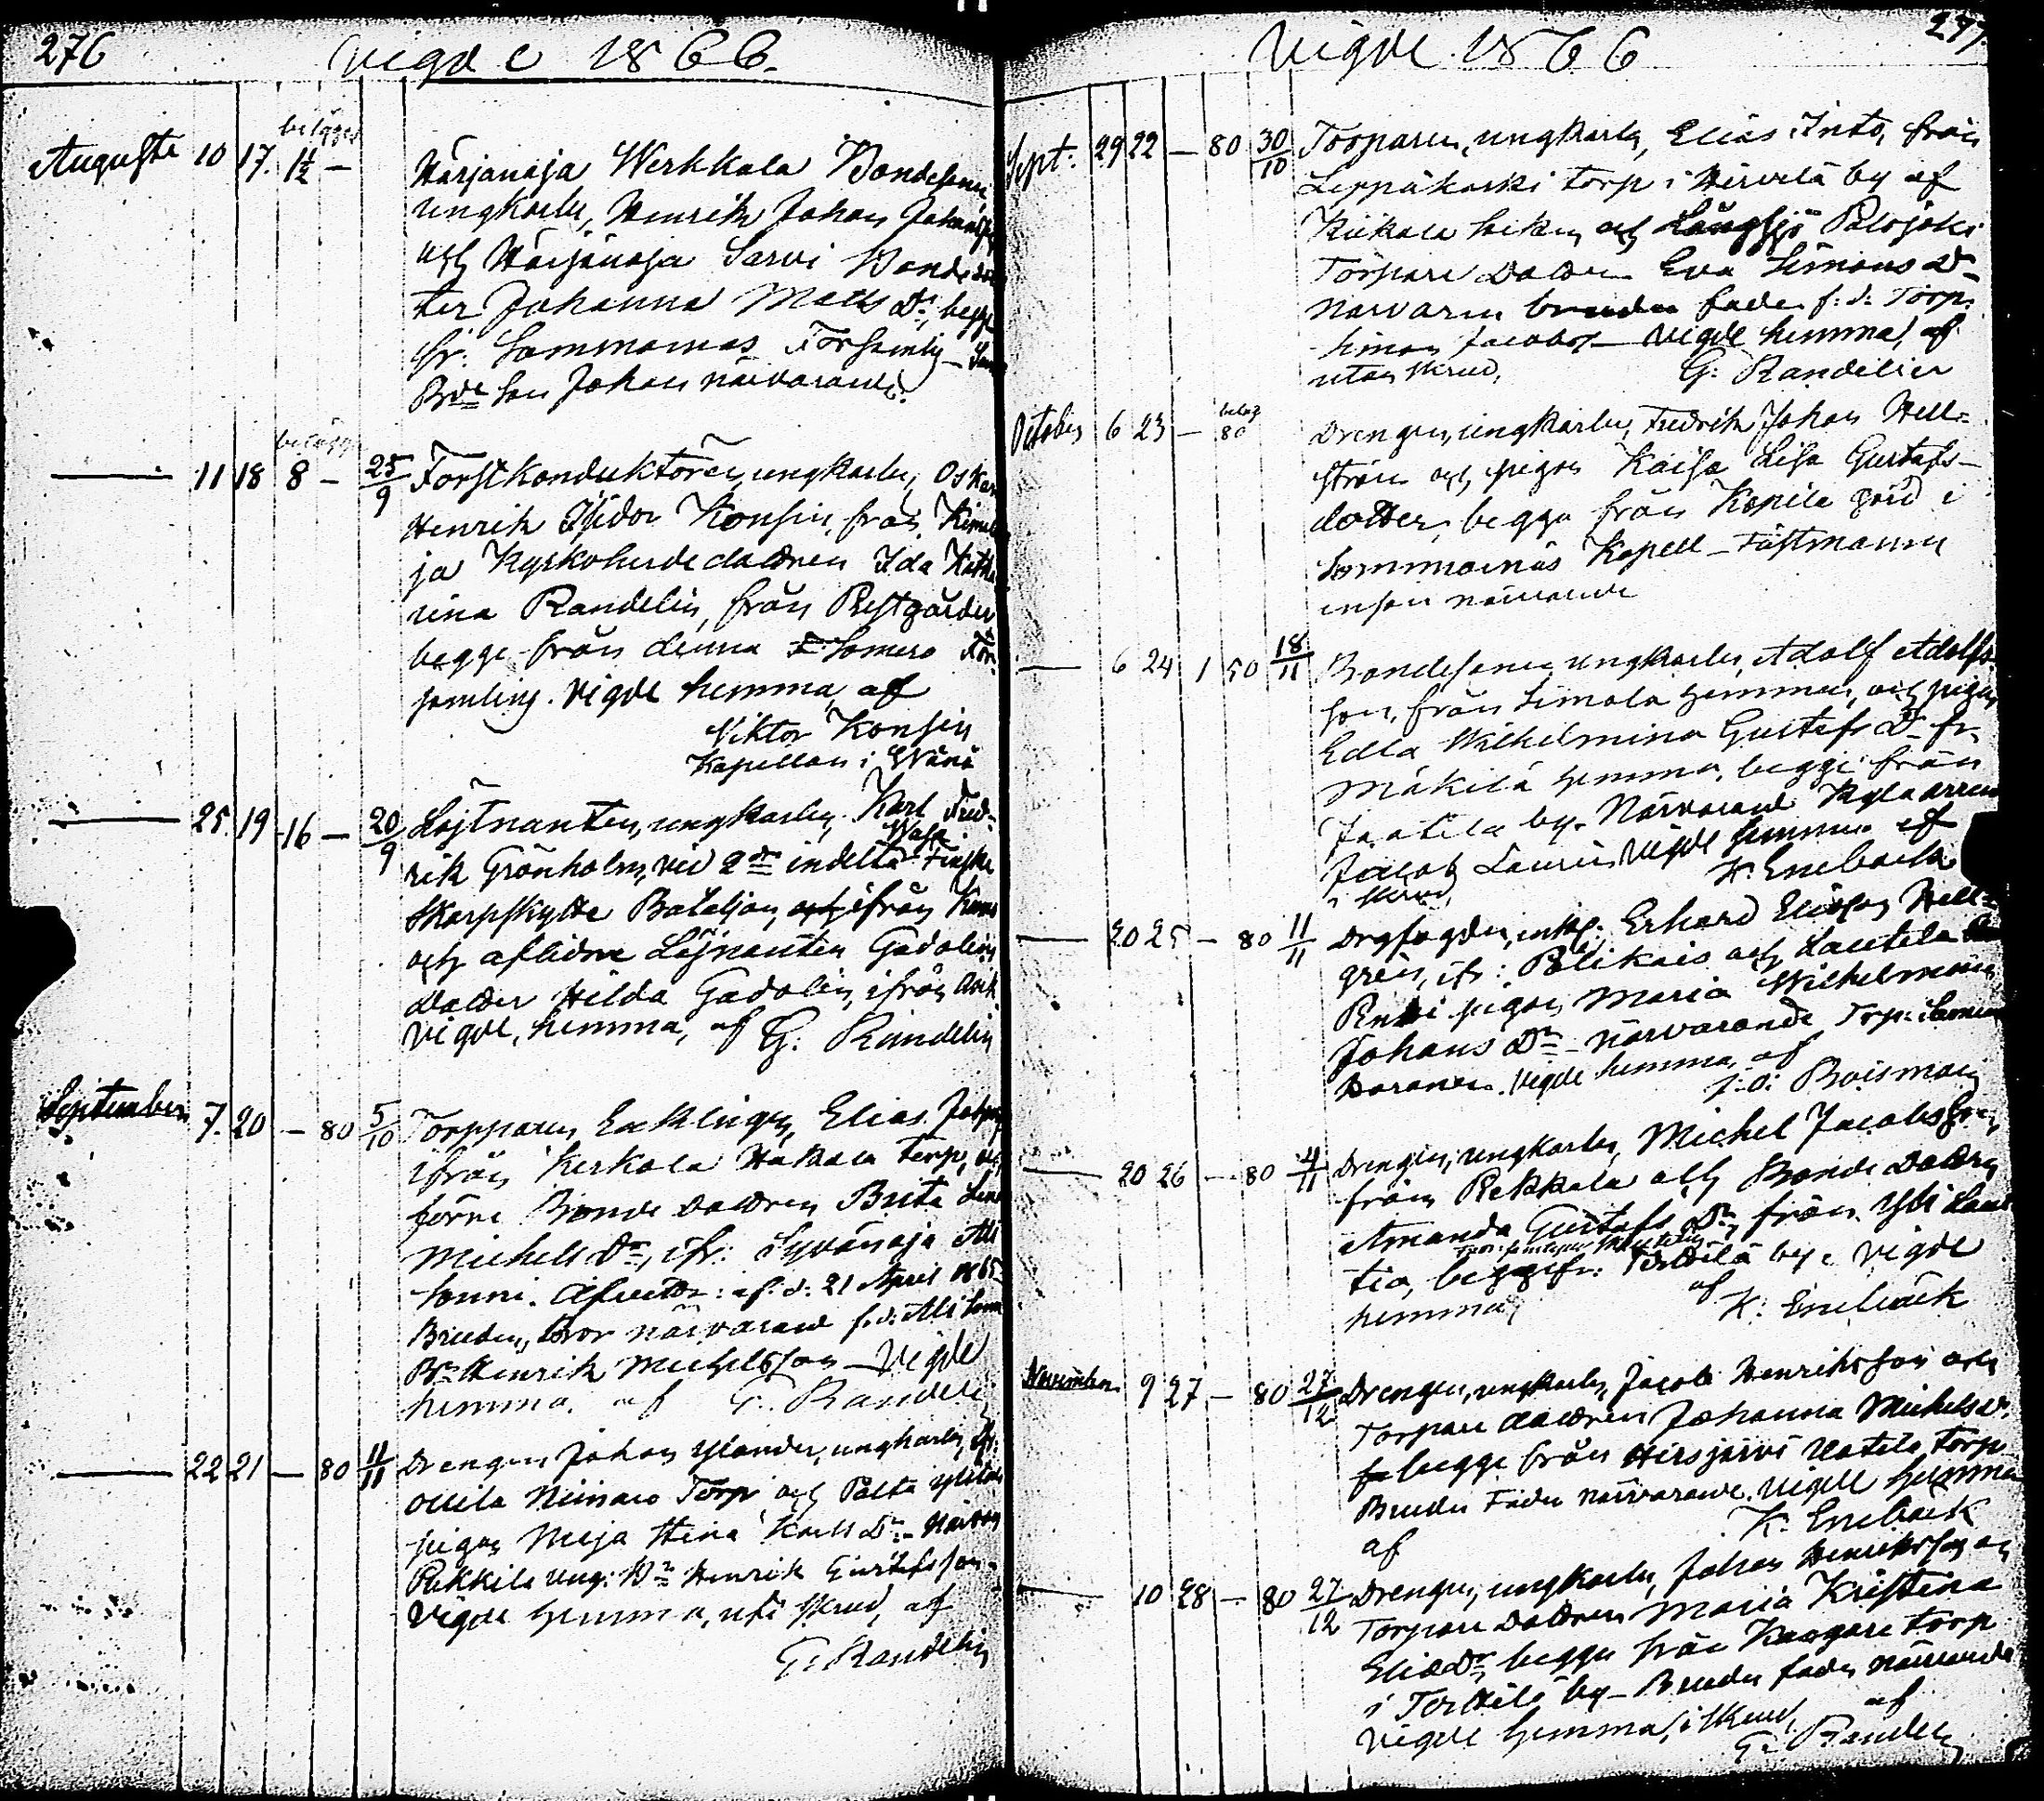 276
Vigde 1866.
Augusti 10 17. 1½ -
Härjanoja Werkkala Bondesonen,
ungkarlen, Henrik Johan
och Härjänoja Sarvi Bonde
ter Johanna Matts Dr, begge
fr: Sommarnäs
Bde Son Johan närvarande.
11 18 8 - 25/9 Forstkonduktören, ungkarlen, Oskar
Henrik Isidor Konsin, från
ja Kyrkoherde dottren Ida Katha
rina Randelin, från Prestgården
begge från denna Somero För
samling. Vigde hemma, af
Viktor Konsin
Kapellan i
25. 19 16 - 20/9 Löjtnanten, ungkarlen, Karl Fred-
rik Grönholm, vid 2dra indelta Finska
Skarpskytte Bataljon, ifrån
och aflidne Löjnanten Gadolins
Dotter Hilda Gadolin, ifrån
Vigde, hemma, af G: Randelin
September 7. 20 - 80 5/10 Torpparen, Enklingen, Elias
ifrån Kerkola Hakala torp, och
förre Bonde dottren Brita Lena
Michels Dr, ifr: Syvänoja Ali
Sonni. af: d: 21 April 1865
Bruden, bror närvarand f.d: Ali
Bn Henrik Michelsson - Vigde
hemma, af G. Randelin
22 21 - 80 11/11 Drengen Johan Ylander, ungkarlen,
Ollila Niinaro Torp och Palta
pigan Maja Stina Karls Dr -
Pakkila ung: Bn Henrik Gustafsson -
Vigde hemma, uti skrud, af
G: Randelin
Vigde 1866
277.
Sept: 29 22 - 80 30/10 Torparen, ungkarlen, Elias Into, från
Leppäkoski torp i Hirvelä by af
Kiikala Socken och Långsjö Palojoki
Torpare Dottren Eva Simons Dr
Närvaran brudens fader f: d: Torp:
Simon Jacobsn Vigde hemma, af
utan skrud, G: Randelin
October 6 23 - 80 Drengen, ungkarlen, Fredrik Johan Hell-
ström och pigan Kaisa Lisa Gustafs-
dotter, begge från Kopila gård i
Sommarnäs Kapell - Fästmannen
ensam närvarande
6 24 1 50 18/11 Bondesonen, ungkarlen, Adolf Adolfs-
son, från Simola hemman, och pigan
Edla Wilhelmina Gustafs Dr fr.
Mäkilä hemman, begge från
Jaatila by. Närvarand
Jacob Laurén Vigde hemma af
i skrud, K. Enebäck
20 25 - 80 11/11 Erhard Eliasson Hell-
grén, ifr: och Lautela
pigan, Maria Wilhelmina
Johans Dr - närvarande Torp:
Vigde hemma, af
J: O: Boisman
20 26 - 80 4/11 Drengen, ungkarlen, Michel Jacobsson,
från Pekkala och Bonde Dottren
Amanda Gustafs Dr, från Yli
tia, begge fr: by. Vigde
hemma, af K: Enebäck
November 9 27 - 80 27/12 Drengen, ungkarlen, Jacob Henriksson och
Torpare dottren Johanna Michels Dr.
begge från Hirsjärvi Uotila torp
Brudens Fader närvarande. Vigde hemma
af K. Enebäck
10 28 - 80 27/12 Drengen, ungkarlen, Johan Henriksson och
Torpare Dottren Maria Kristina
Elias Dr, begge från Kangare torp
i Terttilä by - Brudens fader närvarande
Vigde hemma, i skrud, af
G. Randelin